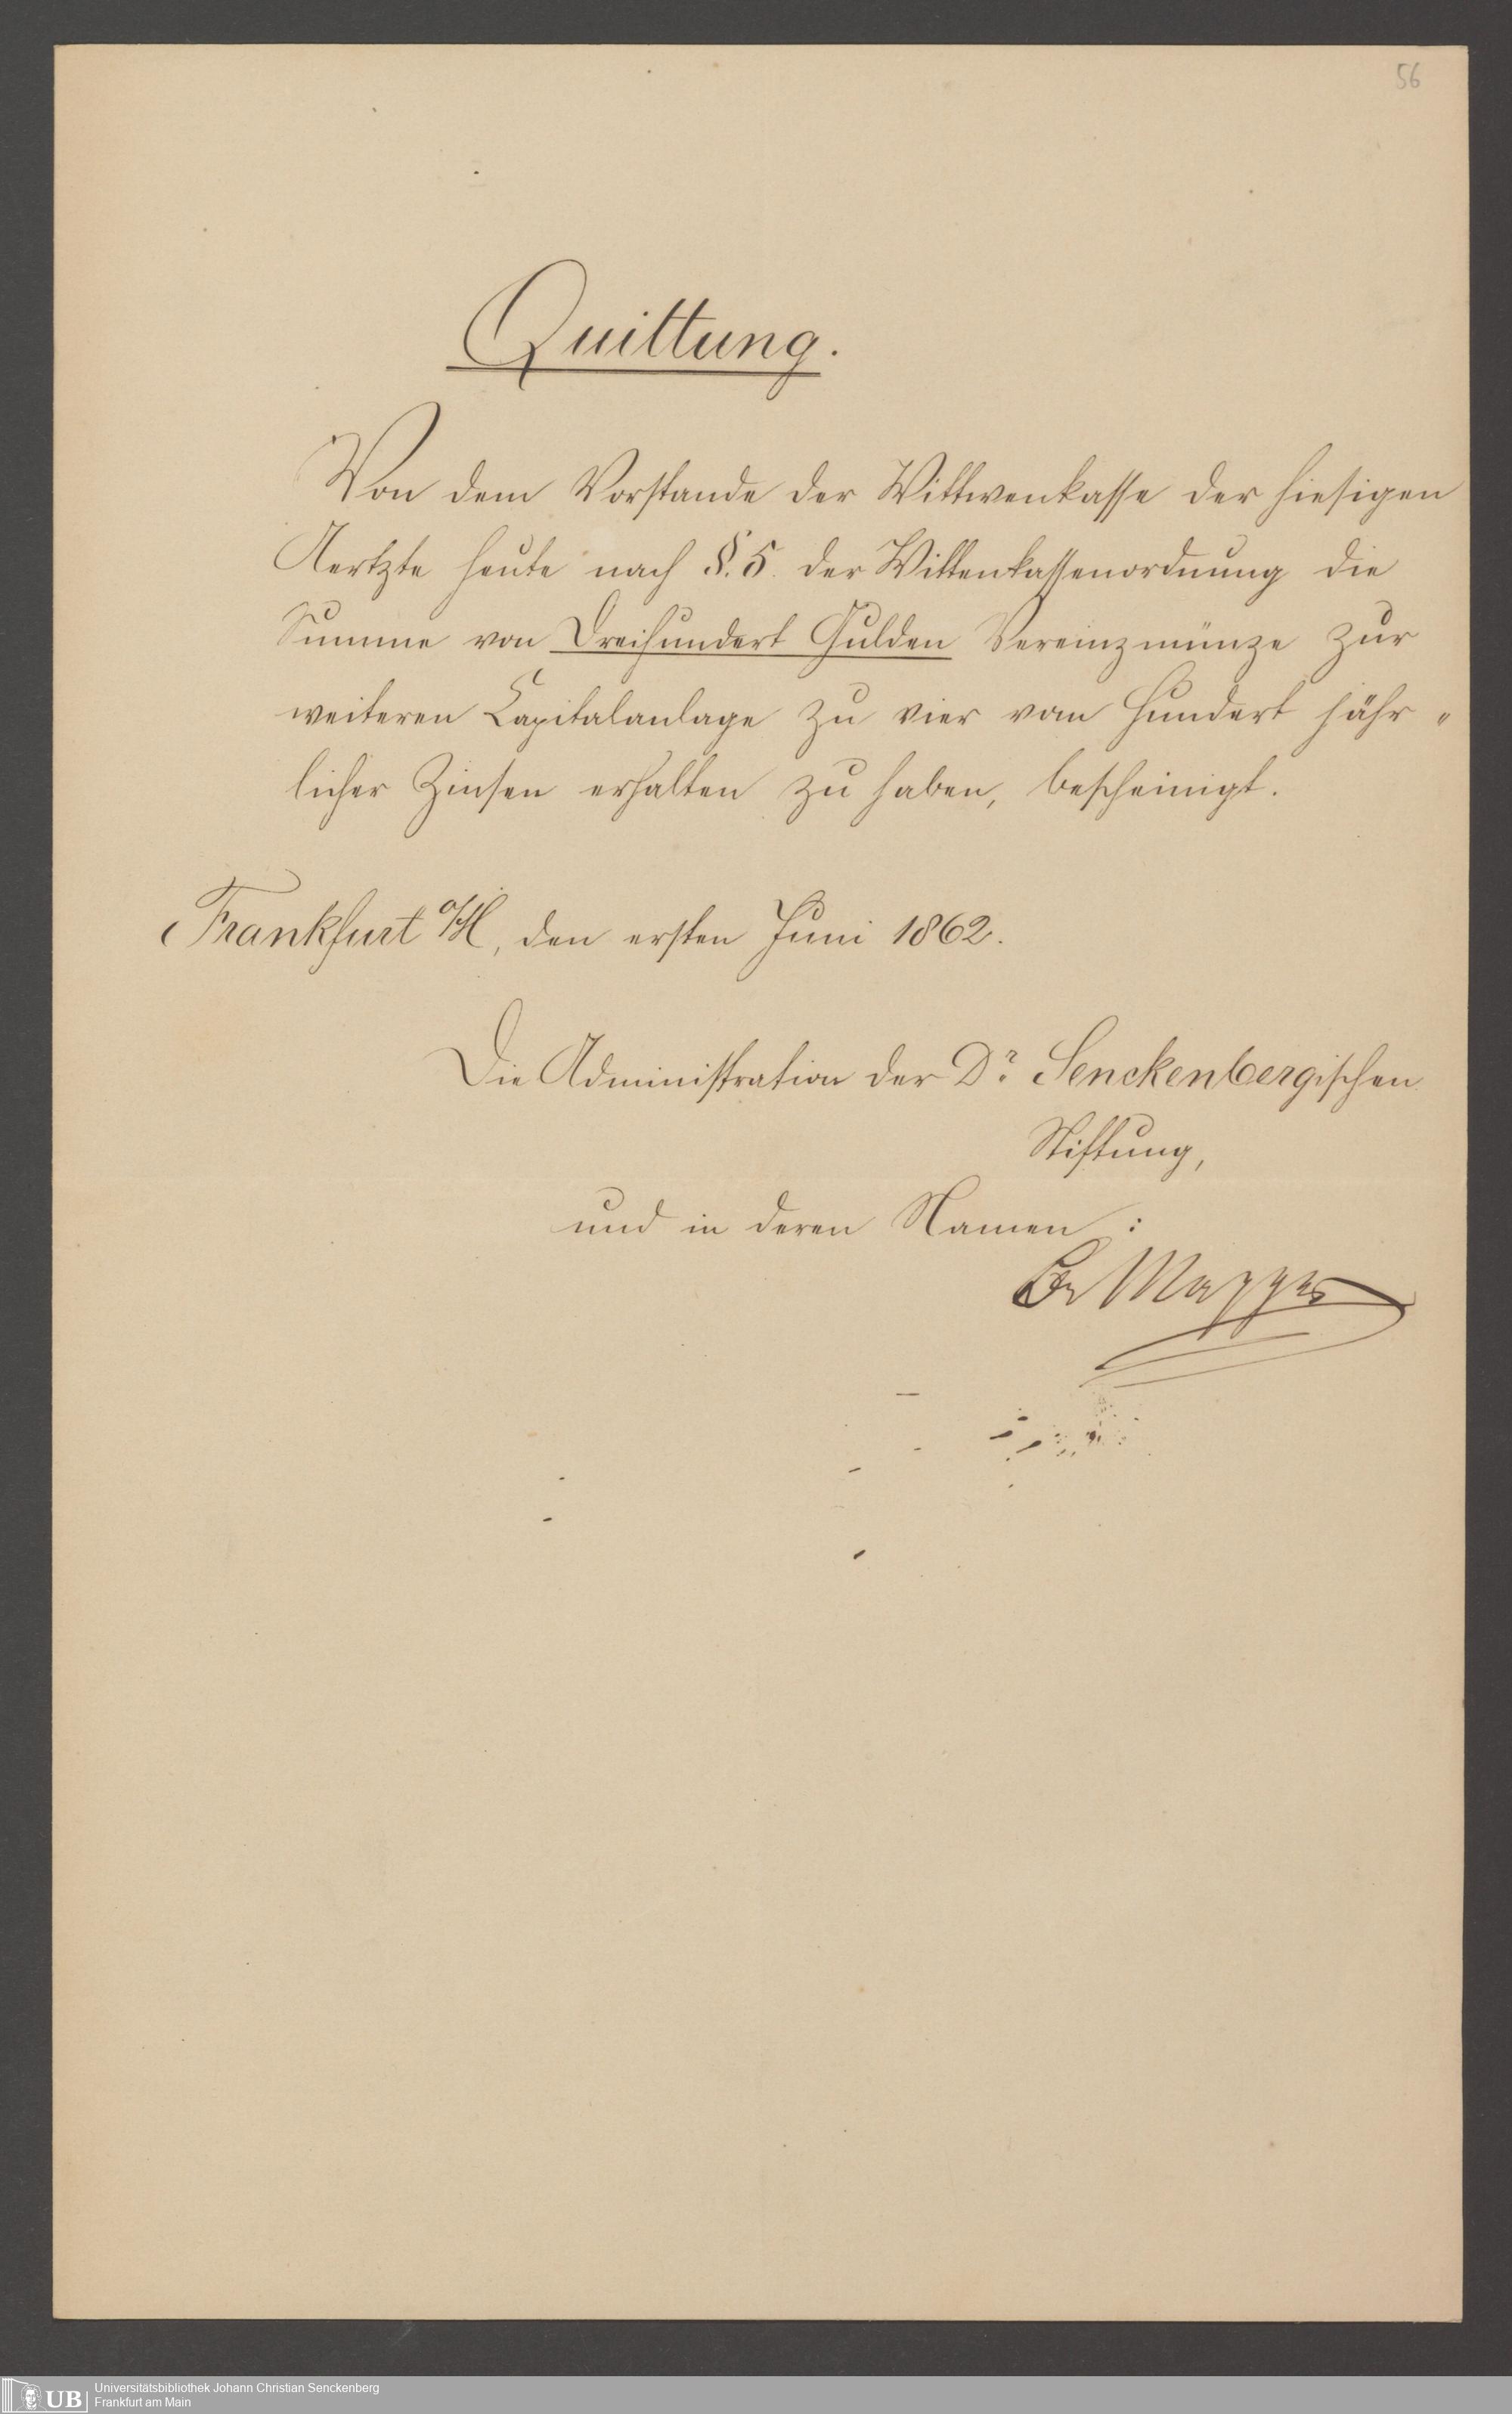 56
Quittung.
Von dem Vorstande der Wittwenkasse der hiesigen
Aertzte heute nach §. 5. der Wittenkassenordnung die
Summe von Dreihundert Gulden Vereinzmünze zur
weiteren Capitalanlage zu vier vom Hundert jähr„
licher Zinsen erhalten zu haben, bescheinigt.
Frankfurt a/M, den ersten Juni 1862.
Die Administration der Dr. Senckenbergischen
Stiftung,
und in deren Namen :
Dr Mappes
UB
Universitätsbibliothek Johann Christian Senckenberg
Frankfurt am Main